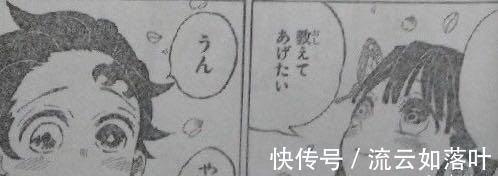 教えて
あげたい
うん
や
快传号 / 流云如落叶